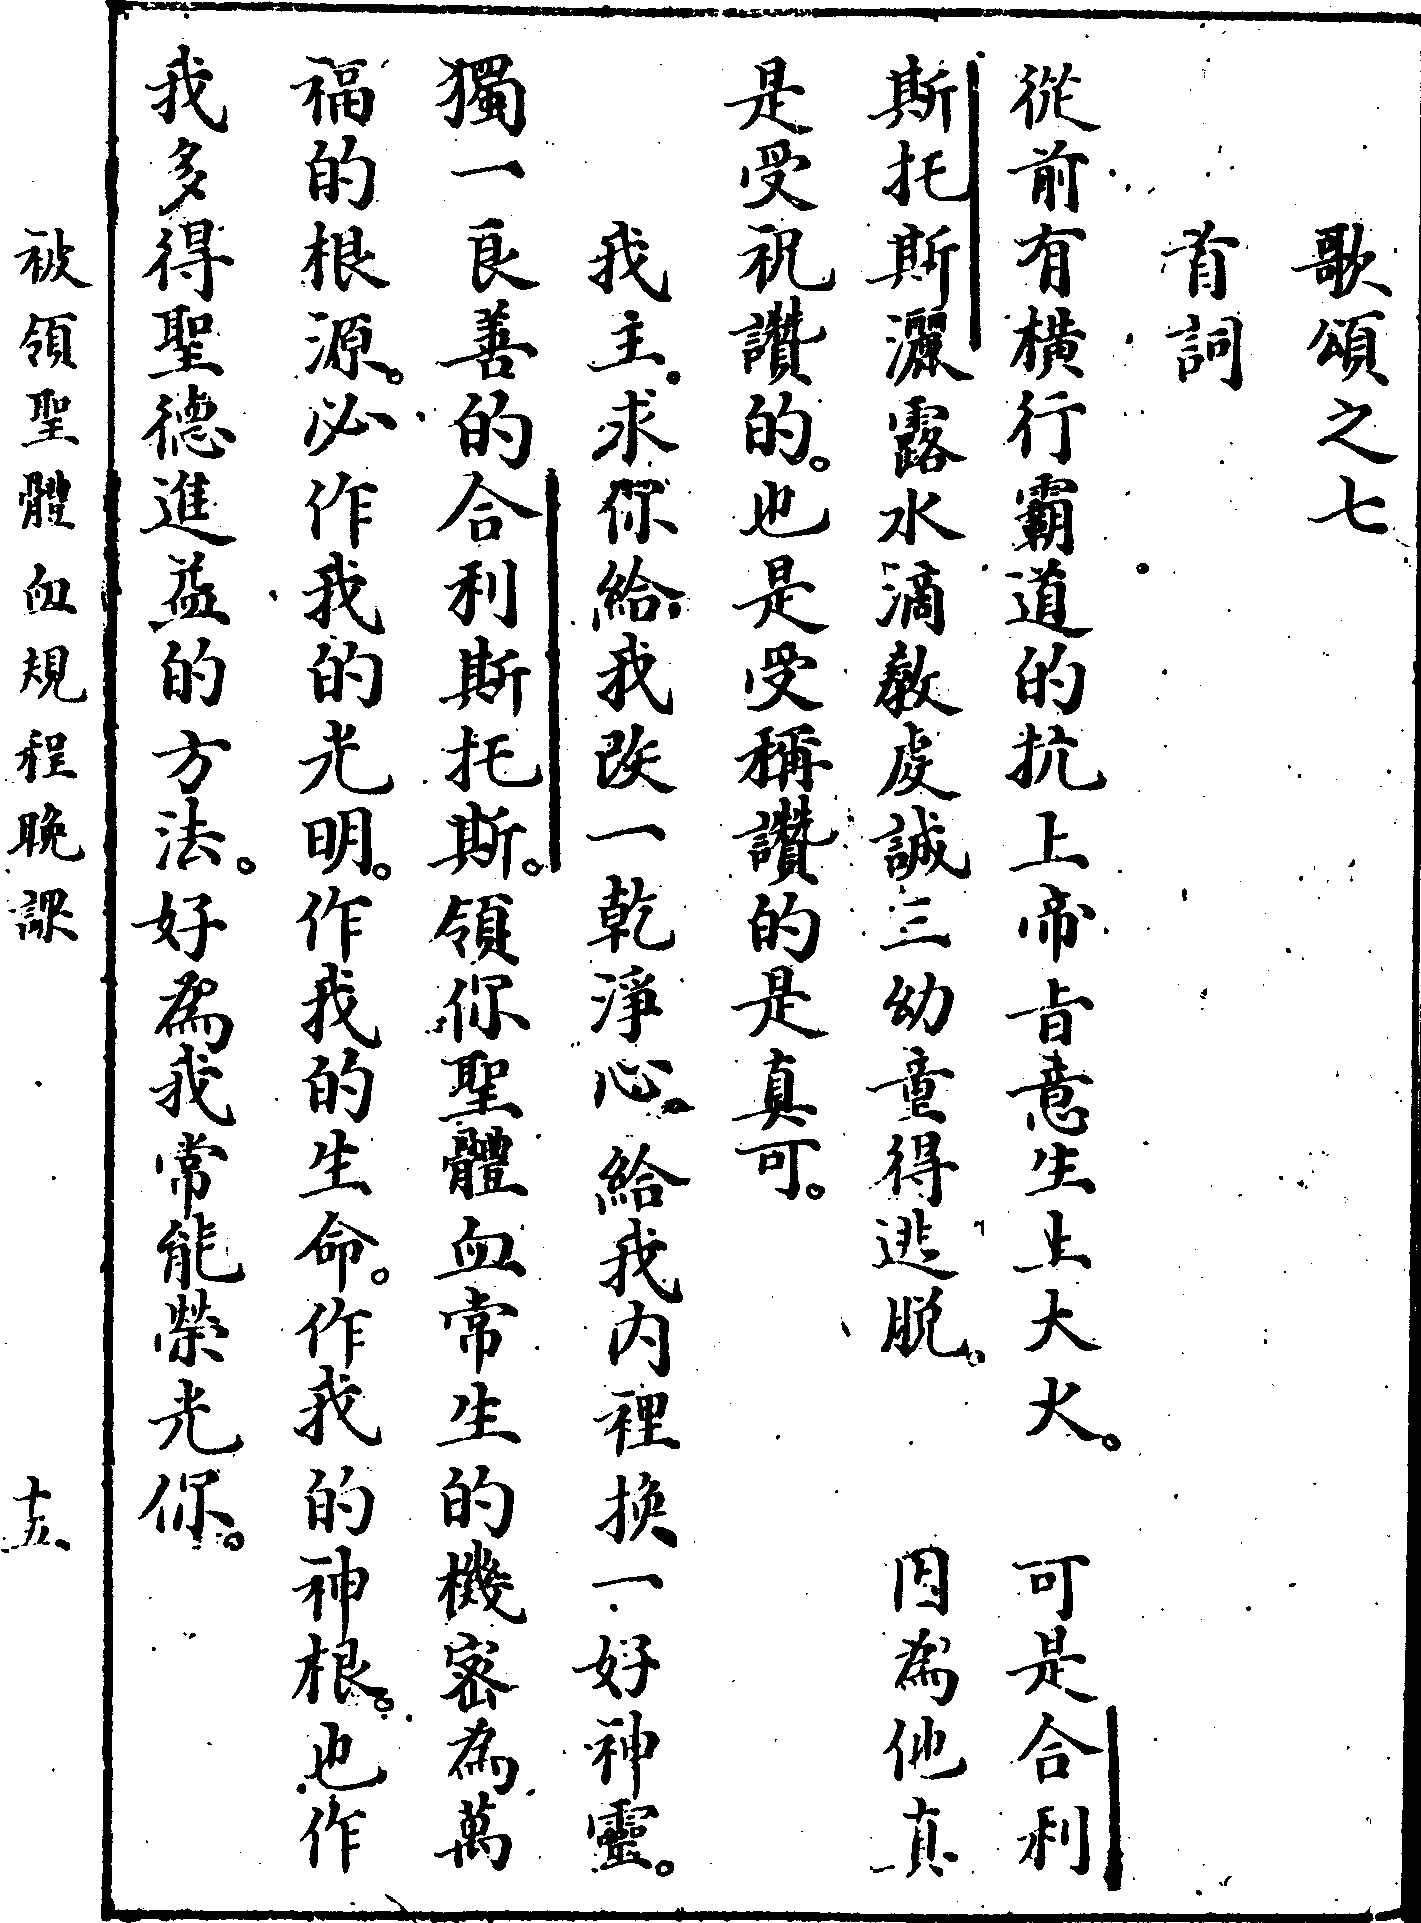 歌頌之七
首詞
從前有橫行霸道的抗上帝旨意生上大火。可是合利
斯托斯灑露水滴教虔誠三幼童得逃脫。因為他真
是受祝讚的。也是受稱讚的是真可。
我主。求你給我改一乾淨心。給我內裡換一好神靈。
獨一良善的合利斯托斯。領你聖體血常生的機密為萬
福的根源。必作我的光明。作我的生命。作我的神根。也作
我多得聖德進益的方法。好為我常能榮光你。
被領聖體血規程晚課 十五